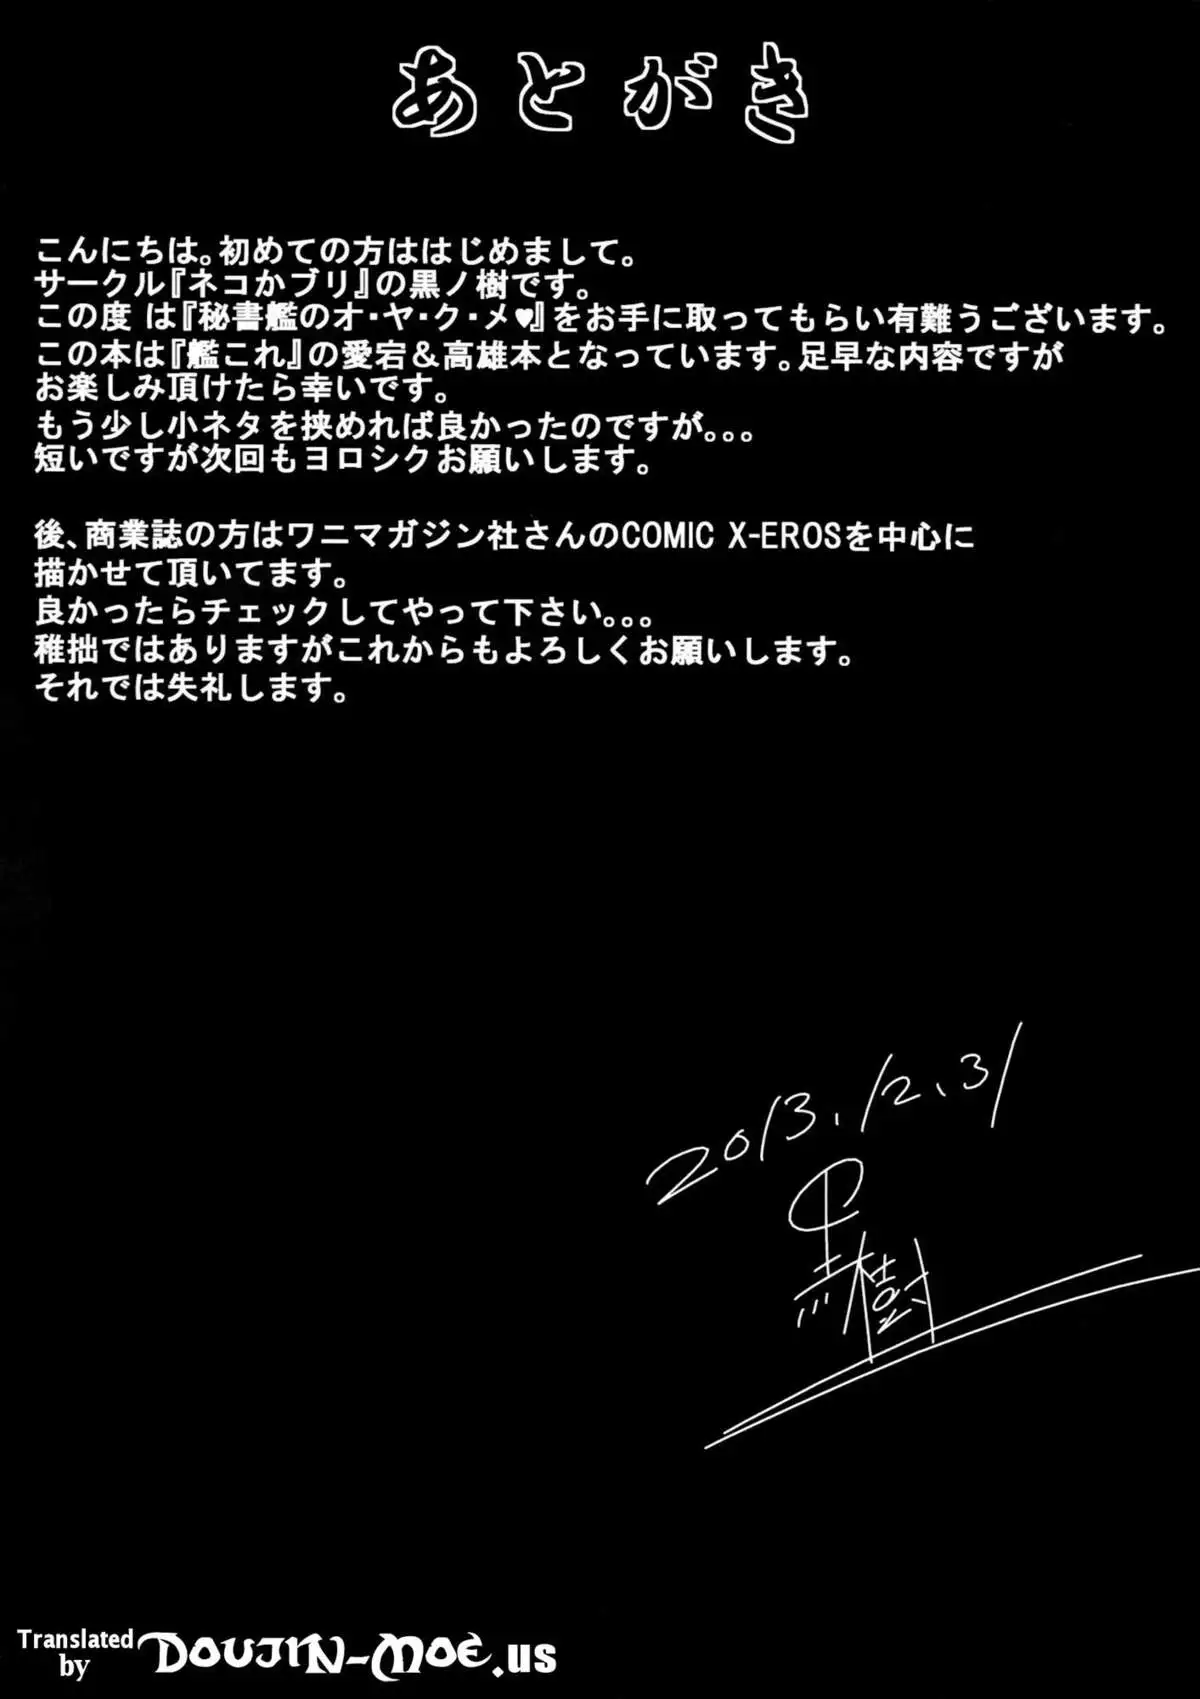 あとがき
こんにちは。初めての方ははじめまして。
サークル『ネコかブリ』の黒ノ樹です。
この度 は『秘書艦のオ・ヤ・ク・メ♥』をお手に取ってもらい有難うございます。
この本は『艦これ』の愛宕＆高雄本となっています。足早な内容ですが
お楽しみ頂けたら幸いです。
もう少し小ネタを挟めれば良かったのですが。。。
短いですが次回もヨロシクお願いします。
後、商業誌の方はワニマガジン社さんのCOMIC X-EROSを中心に
描かせて頂いてます。
良かったらチェックしてやって下さい。。。
稚拙ではありますがこれからもよろしくお願いします。
それでは失礼します。
2013.12.31
黒樹
Translated
by DOUJIN-MOE.us